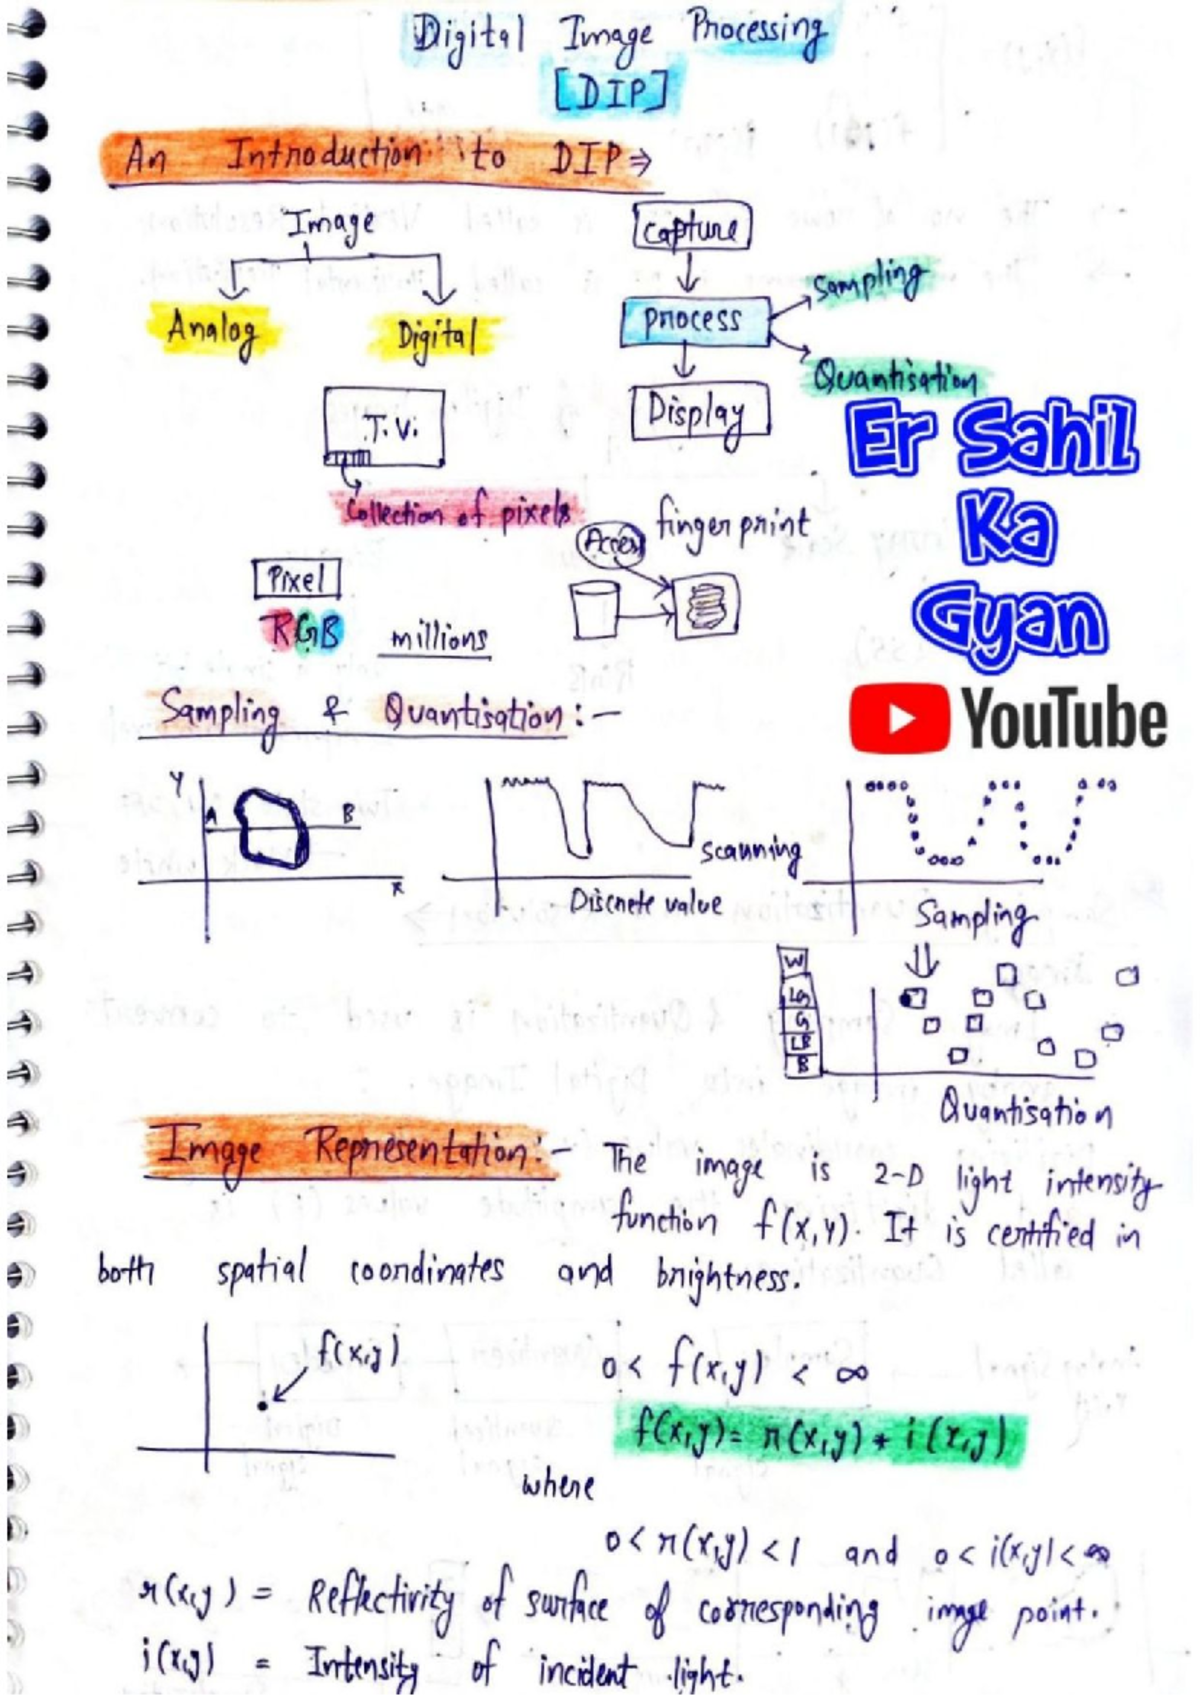 Digital Image Processing
[DIP]
An Introduction to DIP ⇒
Image
Analog
Digital
T.V.
Collection of pixels
Pixel
RGB
millions
Capture
process
Sampling
Quantisation
Display
Er Sahil
Ka
Gyan
YouTube
finger print
Sampling & Quantisation :-
Y
A
B
X
Discrete value
scanning
Sampling
W
LG
G
LB
B
Quantisation
Image Representation:- The image is 2-D light intensity
function f(x,y). It is certified in
both spatial coordinates and brightness.
f(x,y)
0 < f(x,y) < ∞
f(x,y) = r(x,y) * i(x,y)
where
0 < r(x,y) < 1 and 0 < i(x,y) < ∞
r(x,y) = Reflectivity of surface of corresponding image point.
i(x,y) = Intensity of incident light.